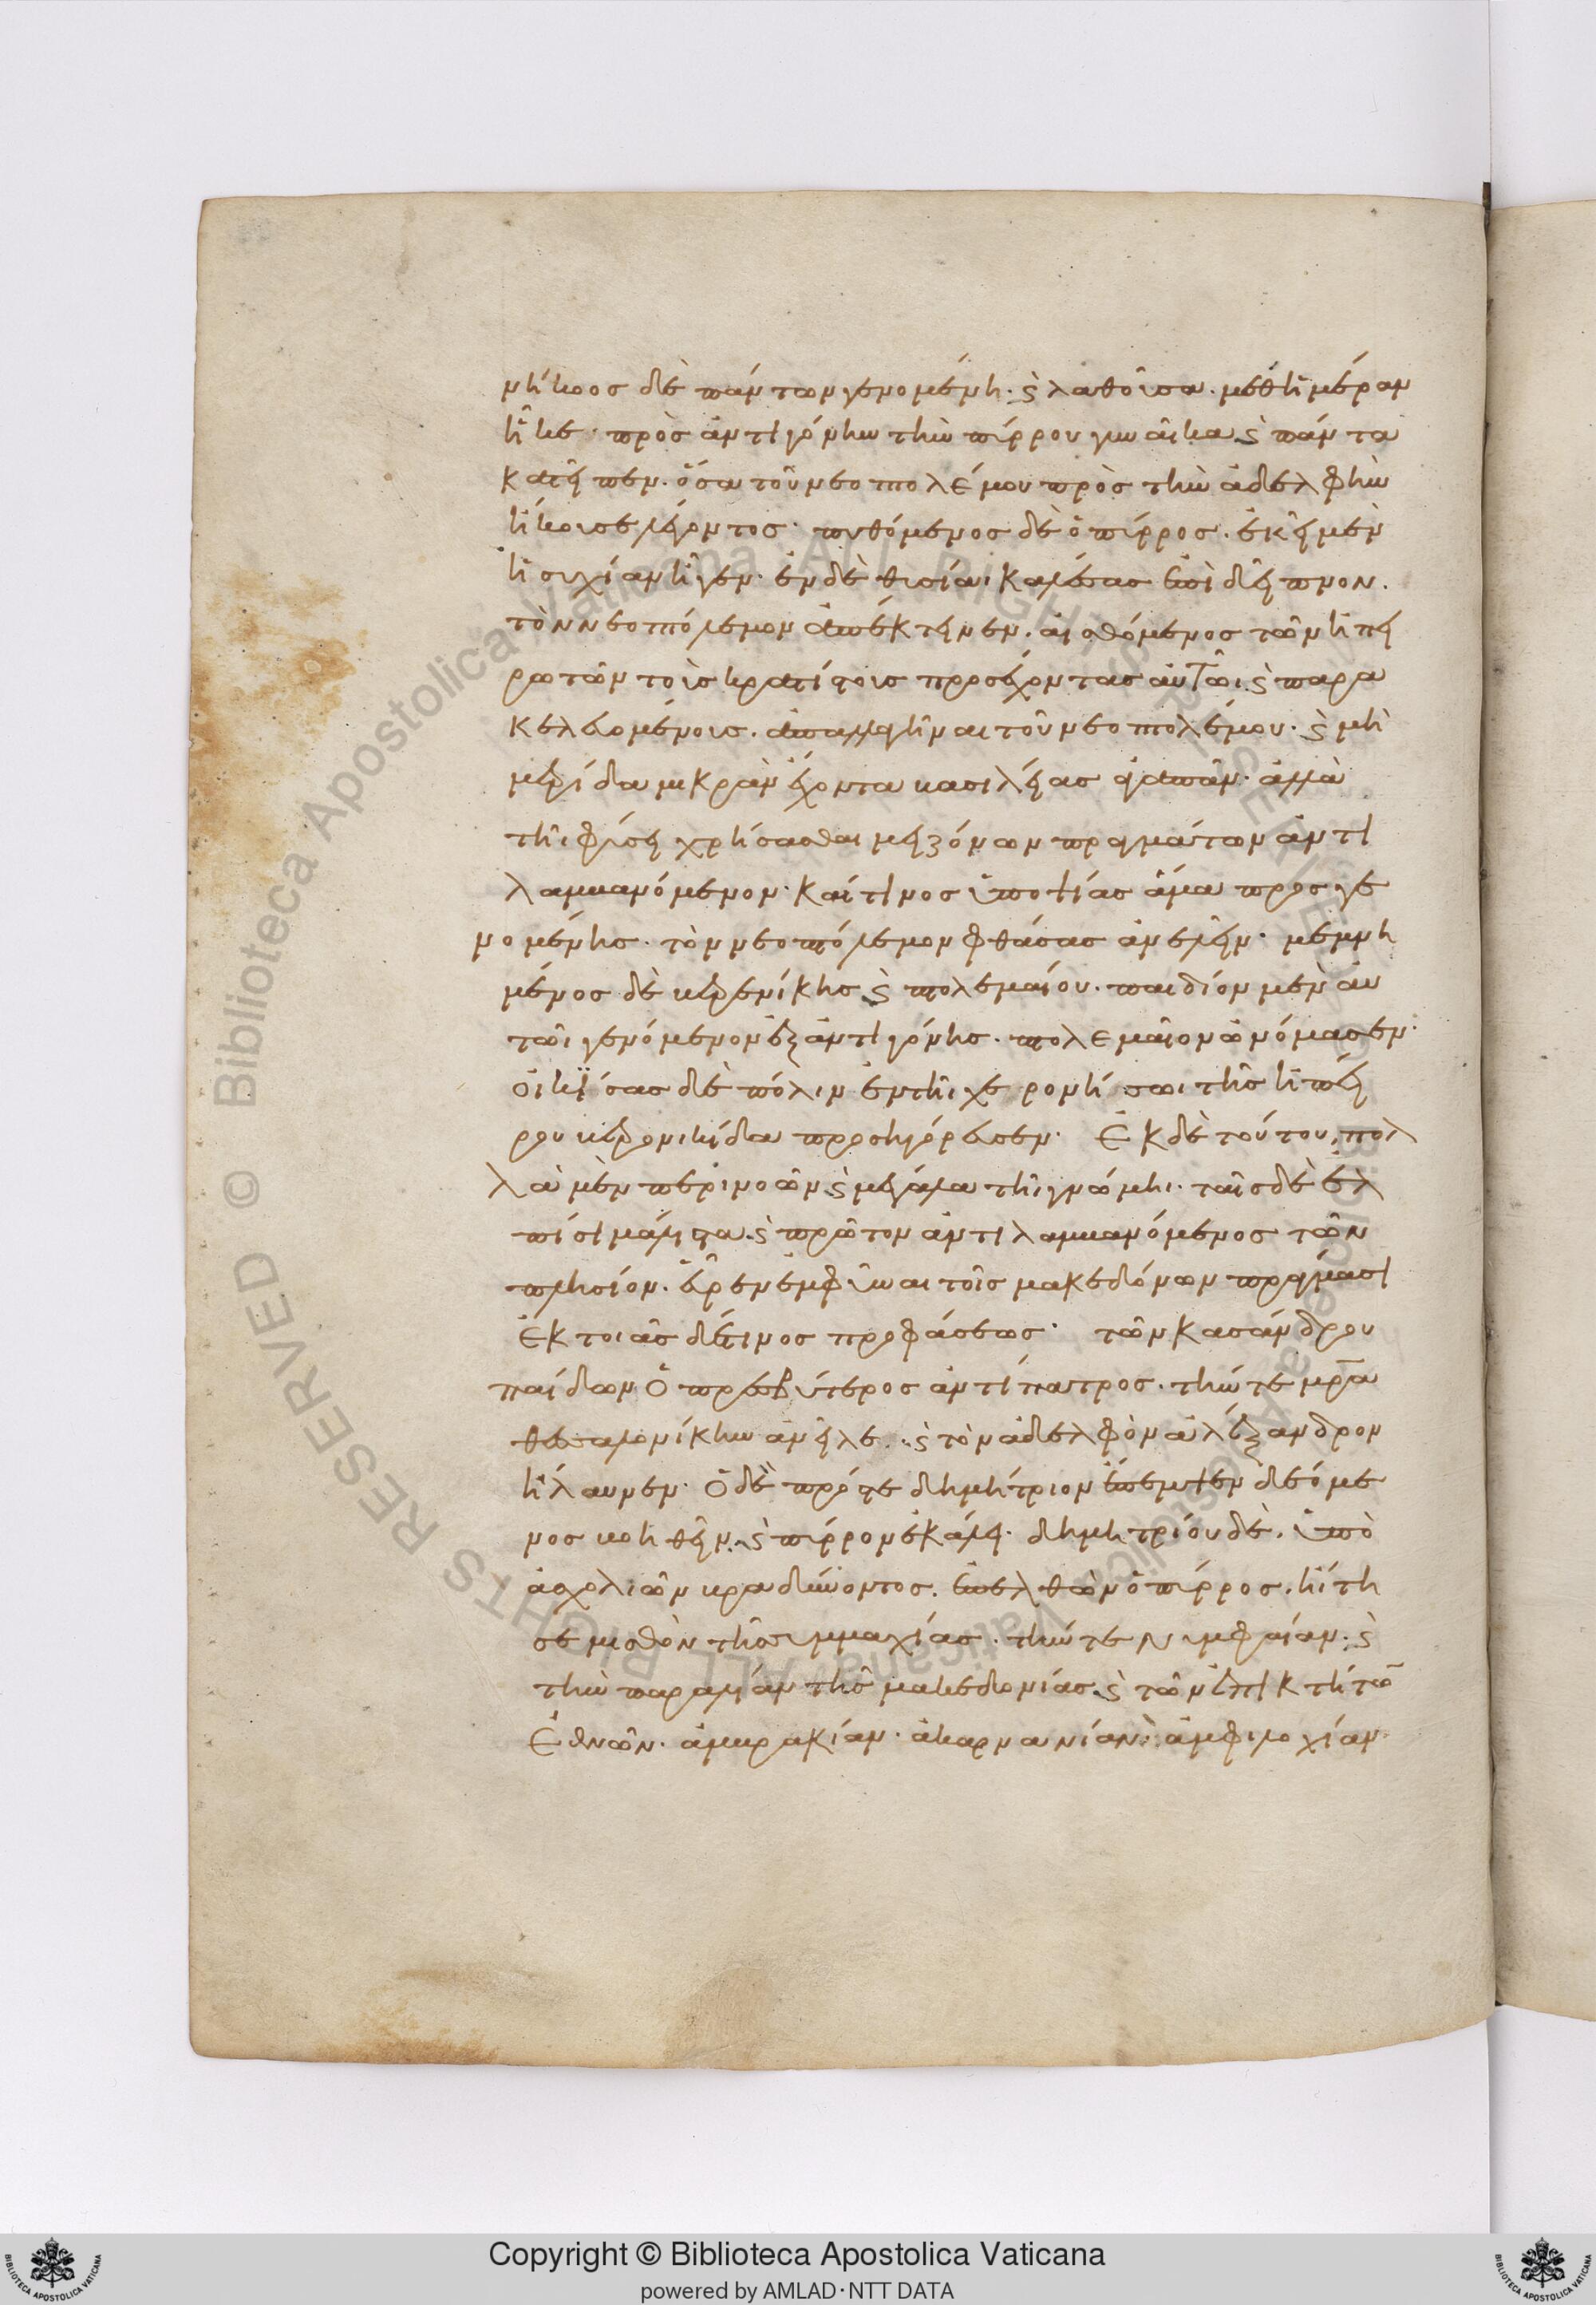 νήκοος δὲ πάντων γενομένη· ϛ λαθοῦσα· μεθημέραν
ἧκε· πρὸς ἀντιγόνην τὴν πύρρου γυναῖκα ϛ πάντα
κατεῖπεν· ὅσα τοῦ νεοπτολέμου πρὸς τὴν ἀδελφὴν
ἤκουσε λέγοντος· πυθόμενος δὲ ὁ πύρρος· ἐκεῖ μὲν
ἡσυχίαν ἦγεν· ἐν δὲ θυσίαι καλέσας ἐπὶ δεῖπνον.
τὸν νεοπτόλεμον ἀπέκτεινεν. αἰσθόμενος τῶν ἠπει
ρωτῶν τοὺς κρατίστους προσέχοντας αὐτῶι ϛ παρα
κελευομένους. ἀπαλλαγῆναι τοῦ νεοπτολέμου· ϛ μὴ
μερίδα μικρὰν ἔχοντα βασιλείας ἀγαπᾶν· ἀλλὰ
τῆι φύσει χρήσασθαι μειζόνων πραγμάτων ἀντι
λαμβανόμενον· καί τινος ὑποψίας ἅμα προσγε
νομένης· τὸν νεοπτόλεμον φθάσας ἀνελεῖν· μεμνη
μένος δὲ βερενίκης ϛ πτολεμαίου· παιδίον μὲν αὐ
τῶι γενόμενον ἐξ ἀντιγόνης· πτολεμαῖον ὠνόμασεν·
οἰκίσας δὲ πόλιν ἐν τῆι χερρονήσωι τῆς ἠπεί
ρου βερονικίδα προσηγόρευσεν· Ἐκ δὲ τούτου, πολ
λὰ μὲν περινοῶν ϛ μεγάλα τῆι γνώμηι· ταῖς δὲ ἐλ
πίσι μάλιστα ϛ πρῶτον ἀντιλαμβανόμενος τῶν
πλησίον· εὗρεν ἐμφῦναι τοῖς μακεδόνων πράγμασι
Ἐκ τοιᾶς δέ τινος προφάσεως· τῶν κασάνδρου
παίδων Ὁ πρεσβύτερος ἀντίπατρος· τήν τε μρ̅α
θεσσαλονίκην ἀνεῖλε· ϛ τὸν ἀδελφὸν ἀλέξανδρον
ἤλαυνεν· Ὁ δὲ πρός τε δημήτριον ἔπεμψεν δεόμε
νος βοηθεῖν ϛ πύρρον ἐκάλει· δημητρίου δὲ. ὑπὸ
ἀσχολιῶν βραδύνοντος. ἐπελθὼν ὁ πύρρος. ἤιτη
σε μισθὸν τῆς συμμαχίας· τήν τε νυμφαίαν· ϛ
τὴν παραλίαν τῆς μακεδονίας ϛ τῶν ἐπικτήτω̅
Ἐθνῶν· ἀμβρακίαν· ἀκαρνανίαν· ἀμφιλοχίαν·
Copyright © Biblioteca Apostolica Vaticana
powered by AMLAD·NTT DATA